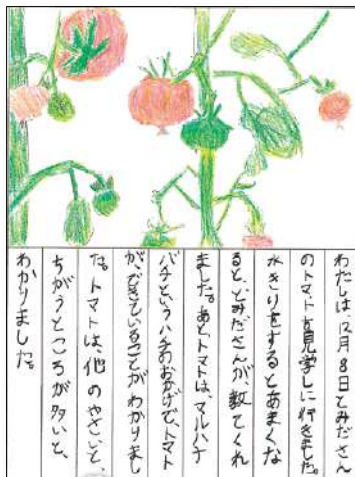 わたしは、12月8日とみださん
のトマトを見学しに行きました。
水きりをするとあまくな
ると、とみださんが、教てくれ
ました。あとトマトは、マルハナ
バチというハチのおかげで、トマト
が、できていることがわかりまし
た。トマトは、他のやさいと、
ちがうところが多いと、
わかりました。